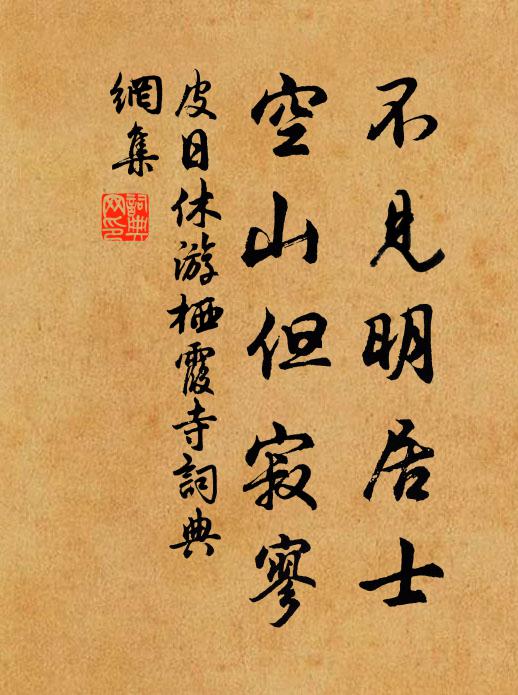 不見明居士
空山但寂寥
皮日休游栖霞寺詞典
網集
詞典
网印